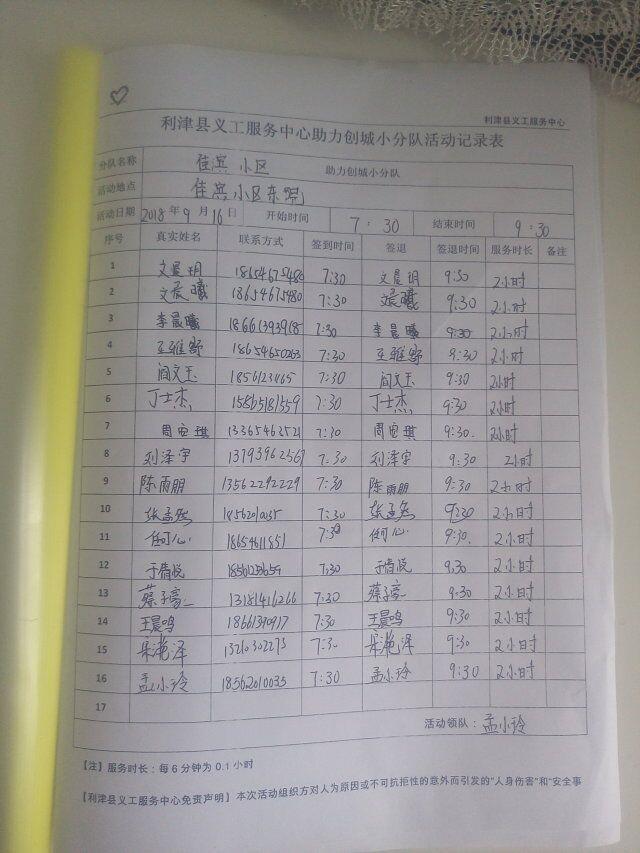 利津县义工服务中心
利津县义工服务中心助力创城小分队活动记录表
分队名称 佳宾小区 助力创城小分队
活动地点 佳宾小区东院
活动日期 2018年9月16日 开始时间 7:30 结束时间 9:30
序号 真实姓名 联系方式 签到时间 签退 签退时间 服务时长 备注
1 文晨玥 18654675480 7:30 文晨玥 9:30 2小时
2 文晨曦 18654675480 7:30 文晨曦 9:30 2小时
3 李晨曦 18661393918 7:30 李晨曦 9:30 2小时
4 18654650263 7:30 9:30 2小时
5 阎文玉 7:30 阎文玉 9:30 2小时
6 丁士杰 15865181559 7:30 丁士杰 9:30 2小时
7 周宦琪 13365463521 7:30 周宦琪 9:30. 2小时
8 刘泽宇 13793962567 7:30 刘泽宇 9:30 2小时
9 陈雨朋 13562292229 7:30 陈雨朋 9:30 2小时
10 张孟然 7:30 张孟然 9:30 2小时
11 任何心 18654611851 7:30 任何心 9:30. 2小时
12 于倩悦 7:30 于倩悦 9:30 2小时
13 蔡子豪 13181416266 7:30 蔡子豪 9:30 2小时
14 王晨鸣 18661390917 7:30 王晨鸣 9:30 2小时
15 13210302273 7:30 9:30 2小时
16 孟小玲 18562010035 7:30 孟小玲 9:30 2小时
17
活动领队：孟小玲
【注】服务时长：每6分钟为0.1小时
【利津县义工服务中心免责声明】本次活动组织方对人为原因或不可抗拒性的意外而引发的“人身伤害”和“安全事